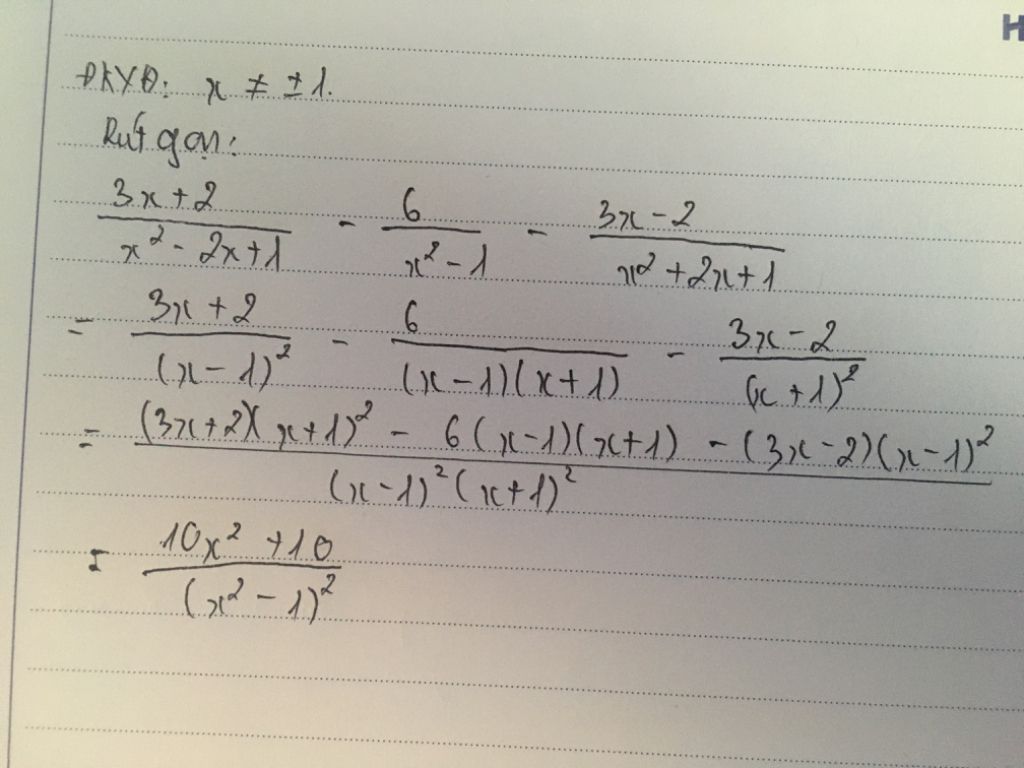 H
ĐKXĐ: x ≠ ±1.
Rút gọn:
(3x+2)/(x² - 2x+1) - 6/(x² - 1) - (3x-2)/(x²+2x+1)
= (3x+2)/((x-1)²) - 6/((x-1)(x+1)) - (3x-2)/((x+1)²)
= ((3x+2)(x+1)² - 6(x-1)(x+1) - (3x-2)(x-1)²)/((x-1)²(x+1)²)
= (10x² +10)/((x² - 1)²)